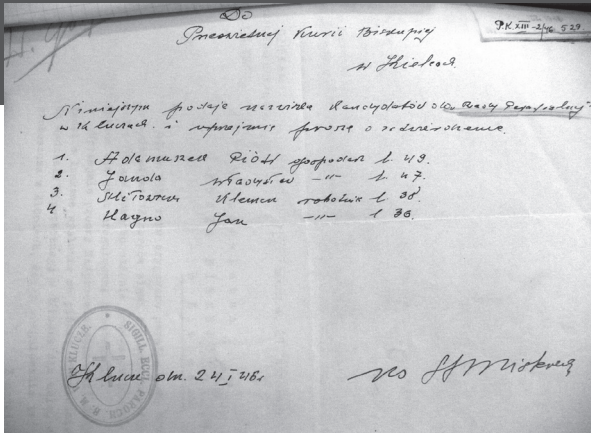 Do
Prześwietnej Kurii Biskupiej
w Kielcach.
P.K. XIII-2/46 529.
Niniejszym podaję nazwiska kandydatów do Rady Parafialnej
w Kluczach i uprzejmie proszę o zatwierdzenie.
1. Adamuszek Piotr gospodarz l. 49.
2. Janda Władysław -"- l. 47.
3. Klemens robotnik l. 38
4. Hagno Jan -"- l. 36.
SIGILL. ECCL. PAROCH.
Klucze dn. 24 I 46 r.